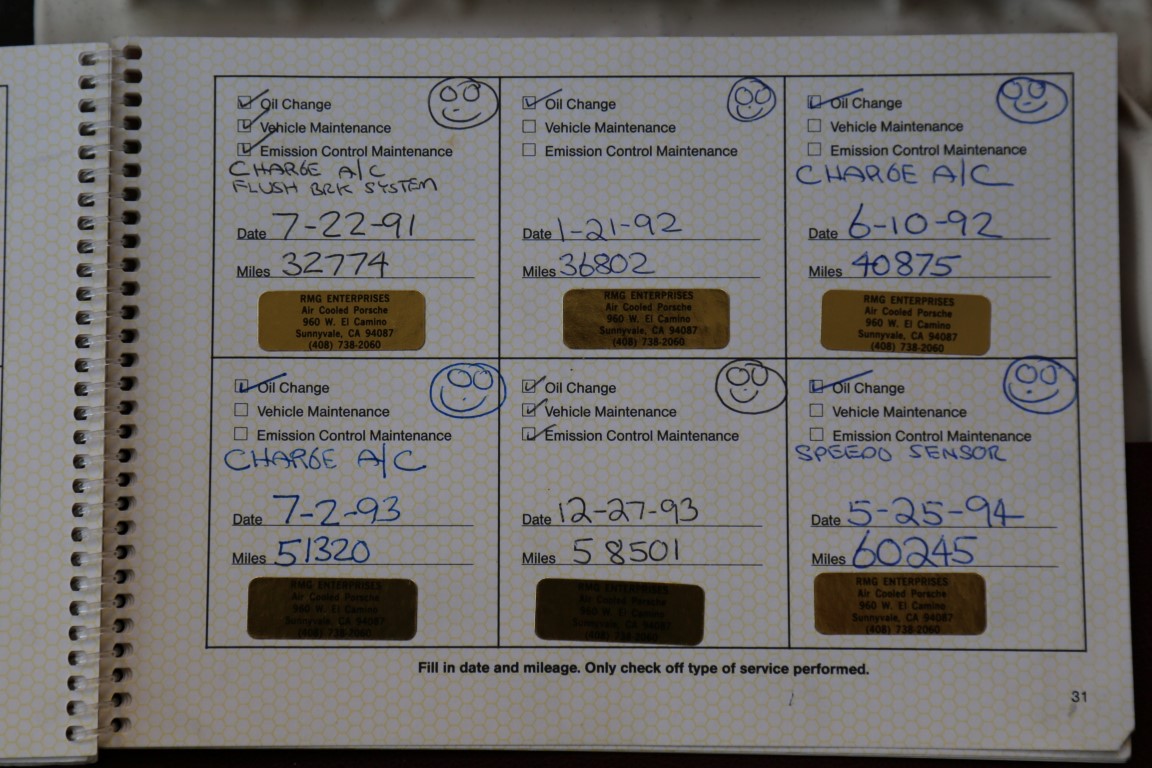 Oil Change
Vehicle Maintenance
Emission Control Maintenance
CHARGE A/C
FLUSH BRK SYSTEM
Date 7-22-91
Miles 32774
RMG ENTERPRISES
Air Cooled Porsche
960 W. El Camino
Sunnyvale, CA 94087
(408) 738-2060
Oil Change
Vehicle Maintenance
Emission Control Maintenance
Date 1-21-92
Miles 36802
RMG ENTERPRISES
Air Cooled Porsche
960 W. El Camino
Sunnyvale, CA 94087
(408) 738-2060
Oil Change
Vehicle Maintenance
Emission Control Maintenance
CHARGE A/C
Date 6-10-92
Miles 40875
RMG ENTERPRISES
Air Cooled Porsche
960 W. El Camino
Sunnyvale, CA 94087
(408) 738-2060
Oil Change
Vehicle Maintenance
Emission Control Maintenance
CHARGE A/C
Date 7-2-93
Miles 51320
RMG ENTERPRISES
Air Cooled Porsche
960 W. El Camino
Sunnyvale, CA 94087
(408) 738-2060
Oil Change
Vehicle Maintenance
Emission Control Maintenance
Date 12-27-93
Miles 58501
RMG ENTERPRISES
Air Cooled Porsche
960 W. El Camino
Sunnyvale, CA 94087
(408) 738-2060
Oil Change
Vehicle Maintenance
Emission Control Maintenance
SPEEDO SENSOR
Date 5-25-94
Miles 60245
RMG ENTERPRISES
Air Cooled Porsche
960 W. El Camino
Sunnyvale, CA 94087
(408) 738-2060
Fill in date and mileage. Only check off type of service performed.
31